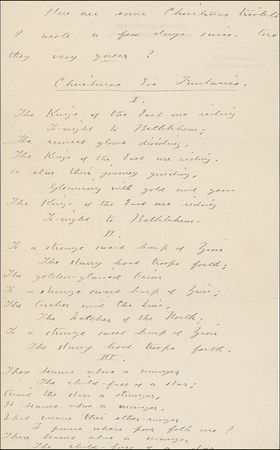 Here are some Christmas triolets
I wrote a few days since. Are
they very queer?
Christmas Eve Fantasies.
I.
The Kings of the East are riding
To-night to Bethlehem;
The sunset glows dividing,
The Kings of the East are riding.
A star their journey guiding,
Gleaming with gold and gem
The Kings of the East are riding
To-night to Bethlehem.
II.
To a strange sweet harp of Zion
The starry host troops forth;
The golden-glaived Orion
To a strange sweet harp of Zion;
The Archer and the Lion,
The Watcher of the North.
To a strange sweet harp of Zion
The starry host troops forth.
III.
There beams above a manger
The child-face of a star;
Amid the stars a stranger,
It beams above a manger.
What means this ether-ranger
To pause where poor folk are?
There beams above a manger
The child-face of a star